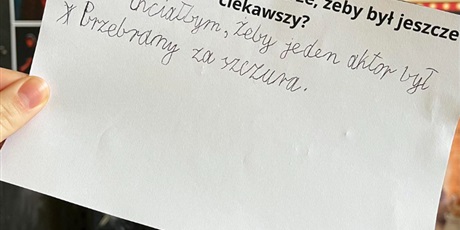 żeby był jeszcze
ciekawszy?
chciałbym, żeby jeden aktor był
Przebrany za szczura.